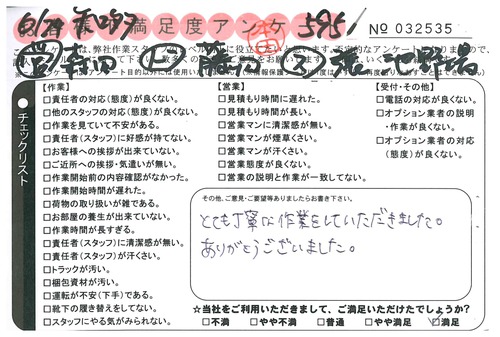 お客様満足度アンケート
No 032535
チェックリスト
【作業】
□責任者の対応(態度)が良くない。
□他のスタッフの対応(態度)が良くない。
□作業を見ていて不安がある。
□責任者(スタッフ)に好感が持てない。
□お客様への挨拶が出来ていない。
□ご近所への挨拶・気遣いが無い。
□作業開始前の内容確認がなかった。
□作業開始時間が遅れた。
□荷物の取り扱いが雑である。
□お部屋の養生が出来ていない。
□作業時間が長すぎる。
□責任者(スタッフ)に清潔感が無い。
□責任者(スタッフ)が汗くさい。
□トラックが汚い。
□梱包資材が汚い。
□運転が不安(下手)である。
□靴下の履き替えをしてない。
□スタッフにやる気がみられない。
【営業】
□見積もり時間に遅れた。
□見積もり時間が長い。
□営業マンに清潔感が無い。
□営業マンが煙草くさい。
□営業マンが汗くさい。
□営業態度が良くない。
□営業の説明と作業が一致してない。
【受付・その他】
□電話の対応が良くない。
□オプション業者の説明
・作業が良くない。
□オプション業者の対応
(態度)が良くない。
その他、ご意見・ご要望等ありましたらお書き下さい。
とても丁寧な作業をしていただきました。
ありがとうございました。
☆当社をご利用いただきまして、ご満足いただけたでしょうか?
□不満 □やや不満 □普通 □やや満足 □満足